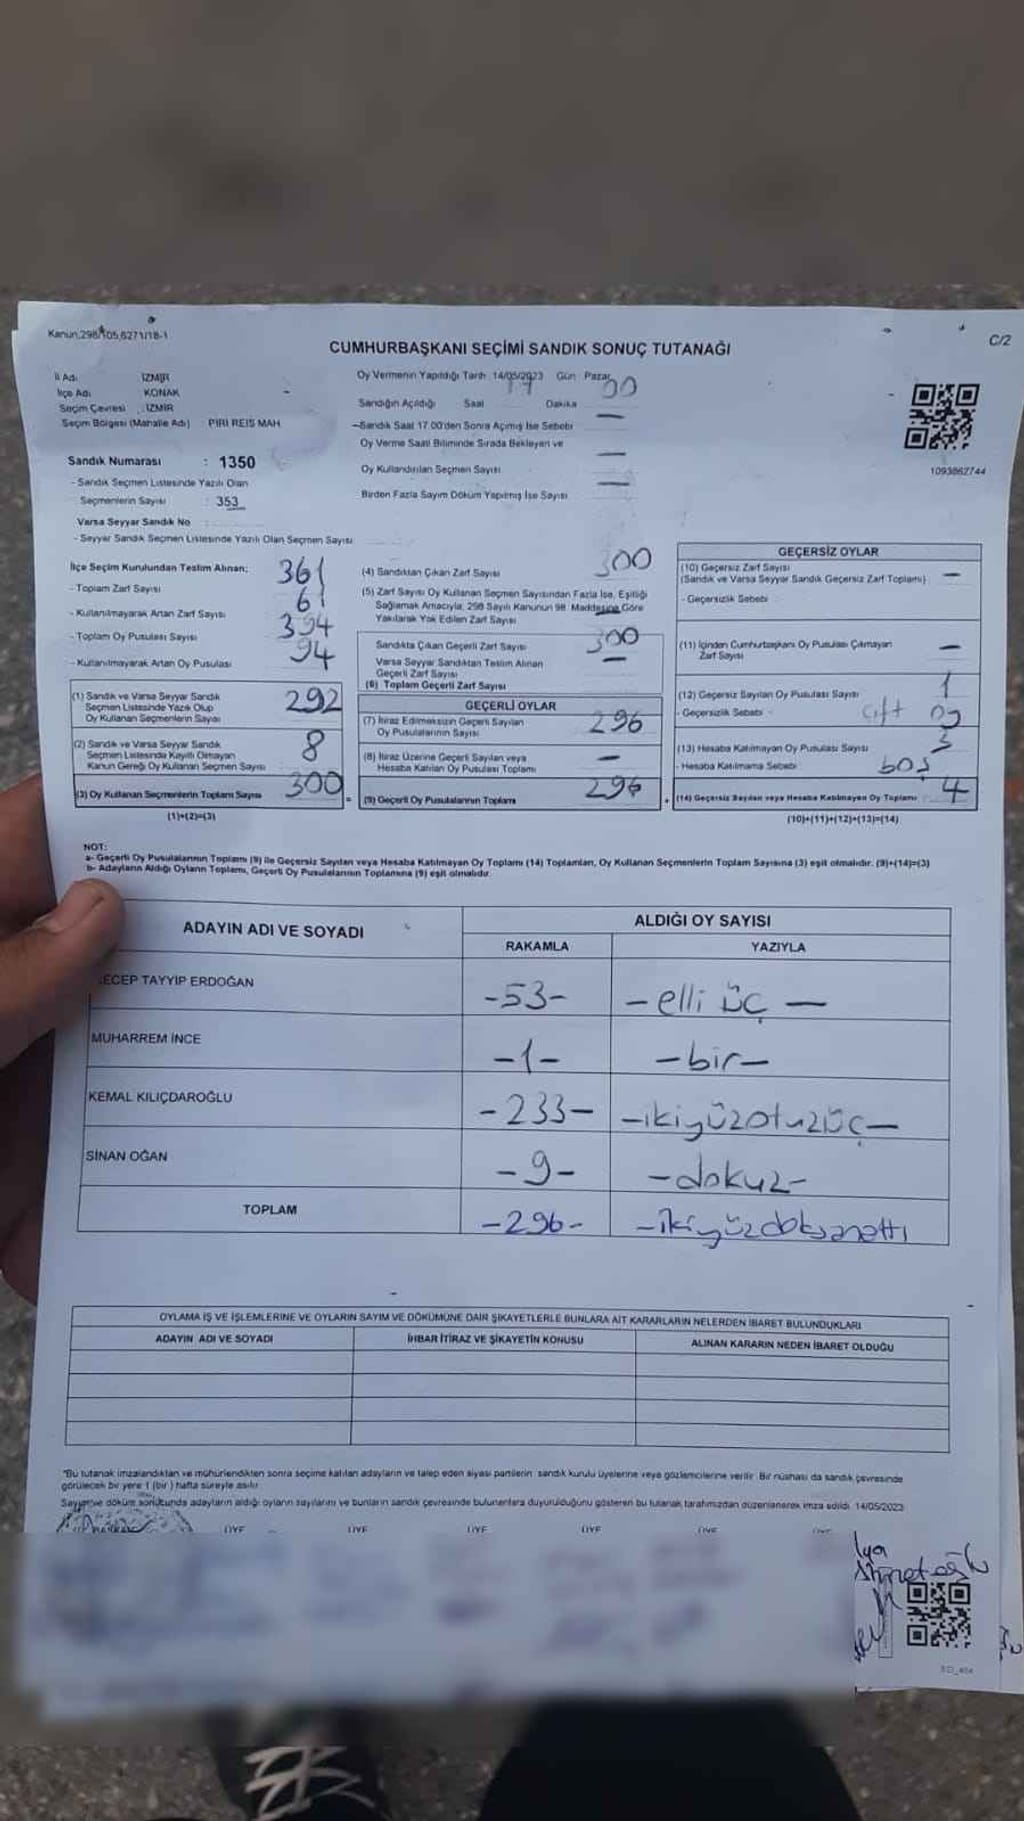 Kanun,298/105,6271/18-1
C/2
CUMHURBAŞKANI SEÇİMİ SANDIK SONUÇ TUTANAĞI
İl Adı İZMİR
İlçe Adı KONAK
Seçim Çevresi İZMİR
Seçim Bölgesi (Mahalle Adı) PİRİ REİS MAH
Sandık Numarası : 1350
- Sandık Seçmen Listesinde Yazılı Olan
Seçmenlerin Sayısı : 353
Varsa Seyyar Sandık No
- Seyyar Sandık Seçmen Listesinde Yazılı Olan Seçmen Sayısı
Oy Vermenin Yapıldığı Tarih 14/05/2023 Gün Pazar
Sandığın Açıldığı Saat 17 Dakika 00
-Sandık Saat 17.00'den Sonra Açılmış İse Sebebi —
Oy Verme Saati Bitiminde Sırada Bekleyen ve
Oy Kullandırılan Seçmen Sayısı —
Birden Fazla Sayım Döküm Yapılmış İse Sayısı —
1093862744
İlçe Seçim Kurulundan Teslim Alınan;
- Toplam Zarf Sayısı 361
- Kullanılmayarak Artan Zarf Sayısı 61
- Toplam Oy Pusulası Sayısı 394
- Kullanılmayarak Artan Oy Pusulası 94
(1) Sandık ve Varsa Seyyar Sandık
Seçmen Listesinde Yazılı Olup
Oy Kullanan Seçmenlerin Sayısı 292
(2) Sandık ve Varsa Seyyar Sandık
Seçmen Listesinde Kayıtlı Olmayan
Kanun Gereği Oy Kullanan Seçmen Sayısı 8
(3) Oy Kullanan Seçmenlerin Toplam Sayısı 300
(1)+(2)=(3)
(4) Sandıktan Çıkan Zarf Sayısı 300
(5) Zarf Sayısı Oy Kullanan Seçmen Sayısından Fazla İse, Eşitliği
Sağlamak Amacıyla; 298 Sayılı Kanunun 98. Maddesine Göre
Yakılarak Yok Edilen Zarf Sayısı —
Sandıkta Çıkan Geçerli Zarf Sayısı 300
Varsa Seyyar Sandıktan Teslim Alınan
Geçerli Zarf Sayısı —
(6) Toplam Geçerli Zarf Sayısı
GEÇERLİ OYLAR
(7) İtiraz Edilmeksizin Geçerli Sayılan
Oy Pusulalarının Sayısı 296
(8) İtiraz Üzerine Geçerli Sayılan veya
Hesaba Katılan Oy Pusulası Toplamı —
(9) Geçerli Oy Pusulalarının Toplamı 296
GEÇERSİZ OYLAR
(10) Geçersiz Zarf Sayısı
(Sandık ve Varsa Seyyar Sandık Geçersiz Zarf Toplamı) —
- Geçersizlik Sebebi
(11) İçinden Cumhurbaşkanı Oy Pusulası Çıkmayan
Zarf Sayısı —
(12) Geçersiz Sayılan Oy Pusulası Sayısı 1
- Geçersizlik Sebebi - Çift oy
(13) Hesaba Katılmayan Oy Pusulası Sayısı 3
- Hesaba Katılmama Sebebi boş
(14) Geçersiz Sayılan veya Hesaba Katılmayan Oy Toplamı 4
(10)+(11)+(12)+(13)=(14)
NOT:
a- Geçerli Oy Pusulalarının Toplamı (9) ile Geçersiz Sayılan veya Hesaba Katılmayan Oy Toplamı (14) Toplamları, Oy Kullanan Seçmenlerin Toplam Sayısına (3) eşit olmalıdır. (9)+(14)=(3)
b- Adayların Aldığı Oyların Toplamı, Geçerli Oy Pusulalarının Toplamına (9) eşit olmalıdır.
ADAYIN ADI VE SOYADI ALDIĞI OY SAYISI
RAKAMLA YAZIYLA
ECEP TAYYİP ERDOĞAN -53- -elli üç-
MUHARREM İNCE -1- -bir-
KEMAL KILIÇDAROĞLU -233- -ikiyüzotuzüç-
SİNAN OĞAN -9- -dokuz-
TOPLAM -296- -ikiyüzdoksanaltı
OYLAMA İŞ VE İŞLEMLERİNE VE OYLARIN SAYIM VE DÖKÜMÜNE DAİR ŞİKAYETLERLE BUNLARA AİT KARARLARIN NELERDEN İBARET BULUNDUKLARI
ADAYIN ADI VE SOYADI İHBAR İTİRAZ VE ŞİKAYETİN KONUSU ALINAN KARARIN NEDEN İBARET OLDUĞU
"Bu tutanak imzalandıktan ve mühürlendikten sonra seçime katılan adayların ve talep eden siyasi partilerin sandık kurulu üyelerine veya gözlemcilerine verilir. Bir nüshası da sandık çevresinde
görülecek bir yere 1 (bir) hafta süreyle asılır.
Sayım ve döküm sonucunda adayların aldığı oyların sayılarını ve bunların sandık çevresinde bulunanlara duyurulduğunu gösteren bu tutanak tarafımızdan düzenlenerek imza edildi. 14/05/2023
ÜYE ÜYE ÜYE ÜYE ÜYE